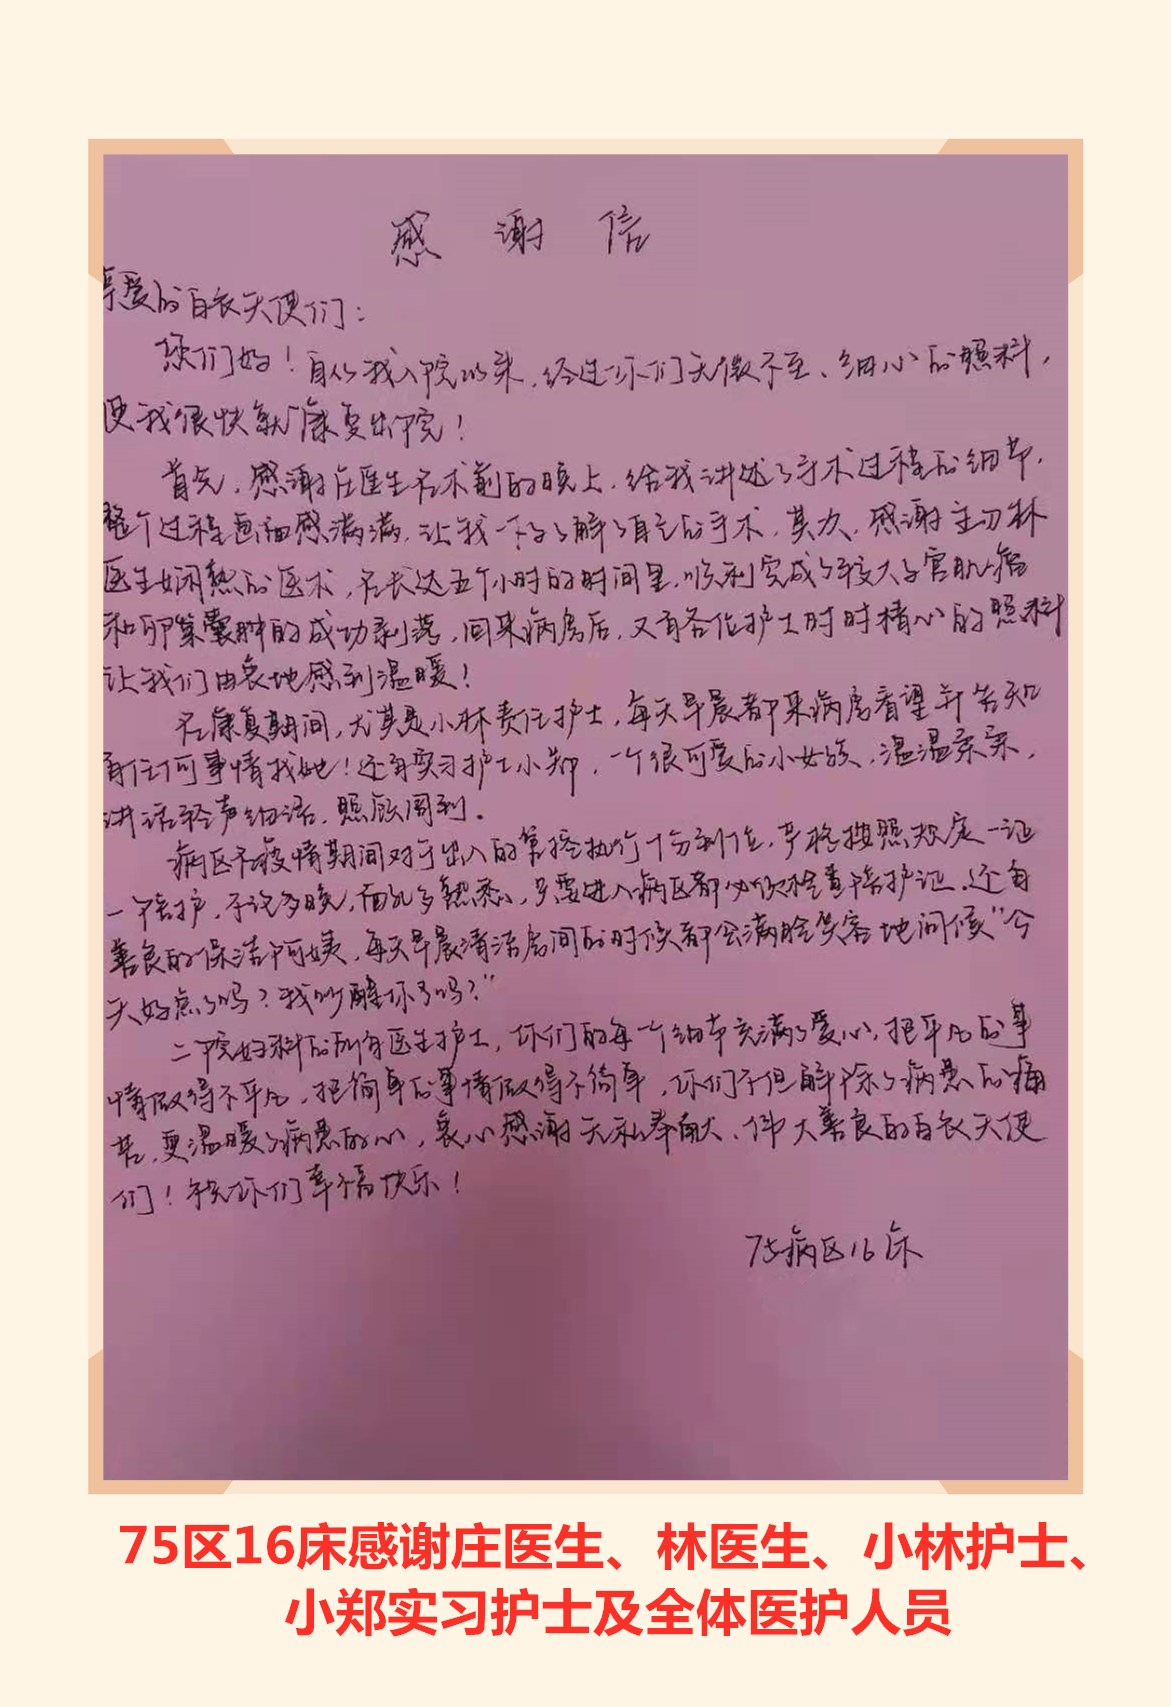 感谢信
亲爱的白衣天使们：
你们好！自从我入院以来，经过你们无微不至、细心的照料，
使我很快就康复出院！
首先，感谢庄医生在术前的晚上，给我讲述了手术过程的细节，
整个过程画面感满满，让我一下子了解了自己的手术，其次，感谢主刀林
医生娴熟的医术，在长达五个小时的时间里，顺利完成了较大子宫肌瘤
和卵巢囊肿的成功剥落，回来病房后，又有各位护士时时精心的照料
让我们由衷地感到温暖！
在康复期间，尤其是小林责任护士，每天早晨都来病房看望并告知
有任何事情找她！还有实习护士小郑，一个很可爱的小女孩，温温柔柔，
讲话轻声细语，照顾周到。
病区在疫情期间对于出入的管控执行十分到位，严格按照规定一证
一陪护，不论多晚，面孔多熟悉，只要进入病区都必须检查陪护证，还有
善良的保洁阿姨，每天早晨清洁房间的时候都会满脸笑容地问候"今
天好点了吗？我吵醒你了吗？"
二院妇科的所有医生护士，你们的每一个细节充满了爱心，把平凡的事
情做得不平凡，把简单的事情做得不简单，你们不但解除了病患的痛
苦，更温暖了病患的心，衷心感谢无私奉献、伟大善良的白衣天使
们！祝你们幸福快乐！
75病区16床
75区16床感谢庄医生、林医生、小林护士、
小郑实习护士及全体医护人员